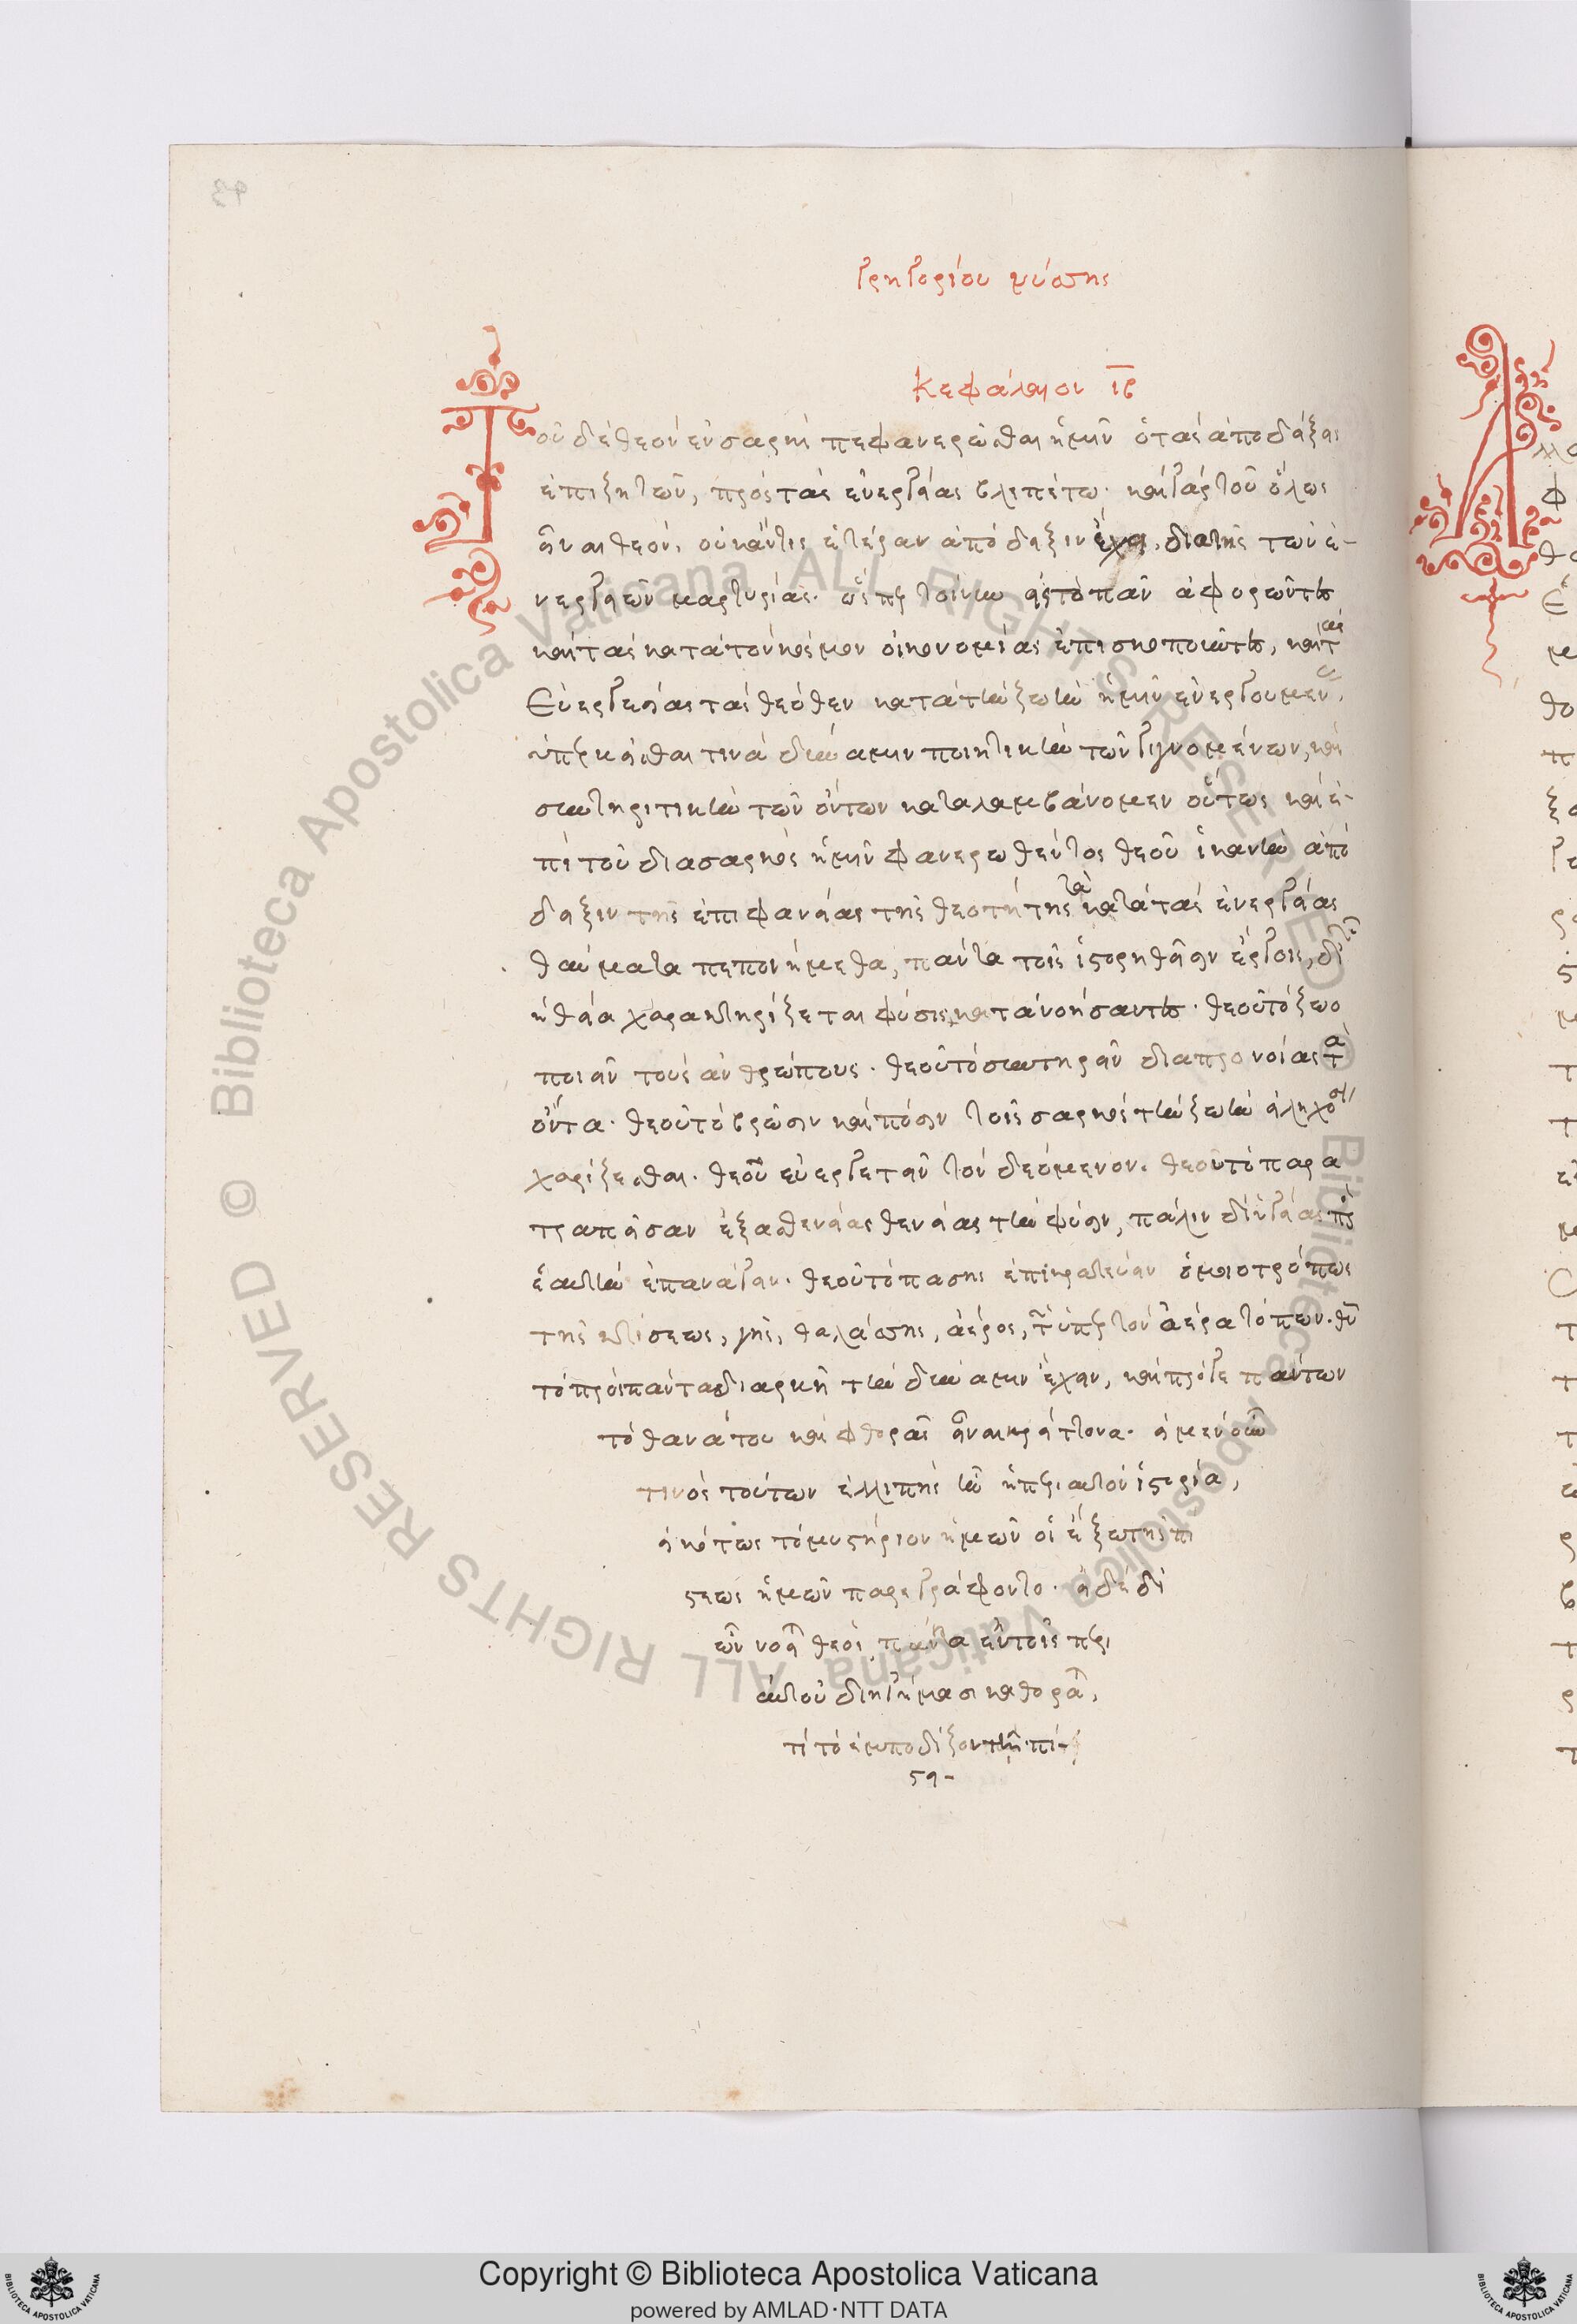 Γρηγορίου νύσσης
Κεφάλαιον ιβ
Τοῦ δὲ θεὸν ἐν σαρκὶ πεφανερῶσθαι ἡμῖν ὁ τὰς ἀποδείξεις
ἐπιζητῶν, πρὸς τὰς ἐνεργείας βλεπέτω. καὶ γὰρ τοῦ ὅλως
εἶναι θεὸν, οὐκ ἄν τις ἑτέραν ἀπόδειξιν ἔχοι, διὰ τῆς τῶν ἐ-
νεργειῶν μαρτυρίας. ὥσπερ τοίνυν εἰς τὸ πᾶν ἀφορῶντες
καὶ τὰς κατὰ τὸν κόσμον οἰκονομίας ἐπισκοποῦντες, καὶ τὰς
εὐεργεσίας τὰς θεόθεν κατὰ τὴν ζωὴν ἡμῖν ἐνεργουμένας,
ὑπερκεῖσθαι τινὰ δύναμιν ποιητικὴν τῶν γιγνομένων, καὶ
συντηρητικὴν τῶν ὄντων καταλαμβάνομεν οὕτως καὶ ἐ-
πὶ τοῦ διὰ σαρκὸς ἡμῖν φανερωθέντος θεοῦ ἱκανὴν ἀπό
δειξιν τῆς ἐπιφανείας τῆς θεότητος τὰ κατὰ τὰς ἐνεργείας
θαύματα πεποιήμεθα, πάντα τοῖς ἱστορηθεῖσιν ἔργοις, δι
ἡ θεία χαρακτηρίζεται φύσις κατανοήσαντες. θεοῦ τὸ ζωο
ποιεῖν τοὺς ἀνθρώπους. θεοῦ τὸ συντηρεῖν διὰ προνοίας τὰ
ὄντα. θεοῦ τὸ βρῶσιν καὶ πόσιν τοῖς σαρκὸς τὴν ζωὴν εἰληχόσι
χαρίζεσθαι. θεοῦ εὐεργετεῖν τὸν δεόμενον. θεοῦ τὸ παρα
τραπεῖσαν ἐξ ἀσθενείας θενείας τὴν φύσιν, πάλιν δι ὑγείας πρὸς
ἑαυτὴν ἐπανάγειν. θεοῦ τὸ πάσης ἐπικρατεύειν ὁμοιοτρόπως
τῆς κτίσεως, γῆς, θαλάσσης, ἀέρος, τῶν ὑπὲρ τὸν ἀέρα τόπων. θεοῦ
τὸ πρὸς πάντα διαρκῆ τὴν δύναμιν ἔχειν, καὶ πρό γε πάντων
τὸ θανάτου καὶ φθορᾶς εἶναι κρείττονα. εἰ μὲν οὖν
τινὸς τούτων ἐλλιπὴς ἦν ἡ περὶ αὐτὸν ἱστορία,
εἰκότως τὸ μυστήριον ἡμῶν οἱ ἔξω τῆς πί
στεως ἡμῶν παρεγράφοντο. εἰ δὲ δι
ὧν νοεῖται θεὸς πάντα ἐν τοῖς περὶ
αὐτοῦ διηγήμασι καθορᾶται,
τί τὸ ἐμποδίζον τῇ πί-
στει-